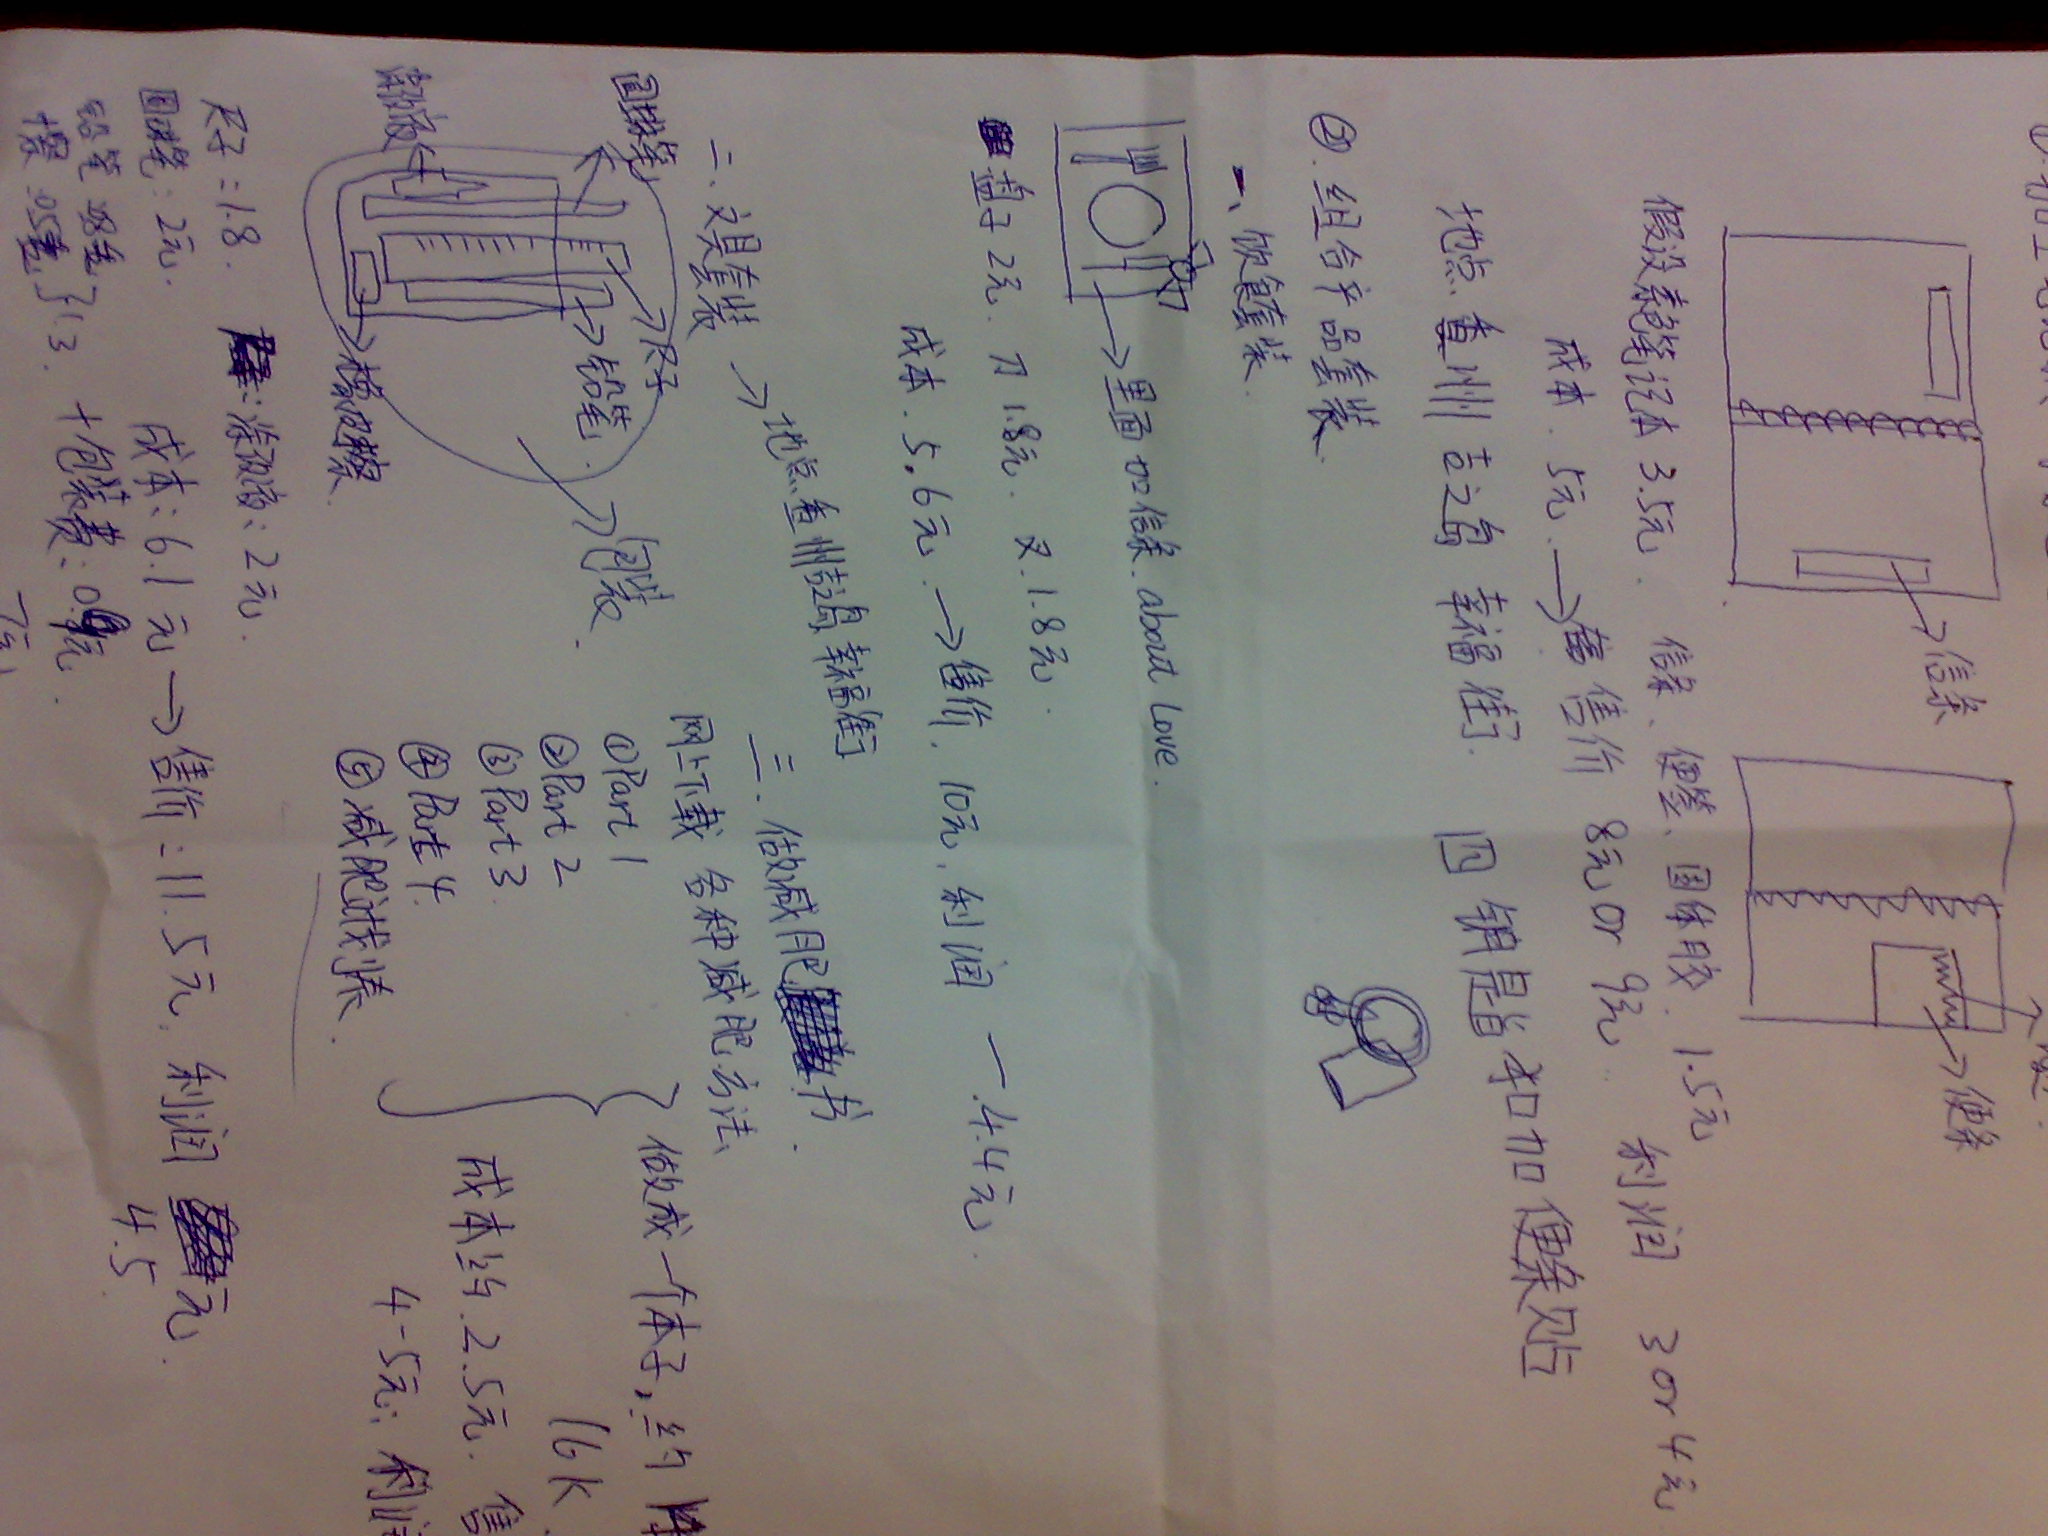 信条
便条
假设卷笔记本 3.5元. 信条、便签、固体胶. 1.5元 利润 3 or 4元
成本. 5元. → 售价 8元 or 9元.
地点. 查州 吉之岛 幸福街.
四 钥匙扣加便条贴
②. 组合产品套装.
一、饮食套装.
→ 里面加信条. about Love.
盘子 2元. 刀 1.8元. 叉. 1.8元.
成本. 5.6元. → 售价. 10元. 利润 — 4.4元.
二. 文具套装 → 地点 查州吉之岛 幸福街
圆珠笔
涂改液
尺子
铅笔.
橡皮擦.
包装.
尺子: 1.8. 涂改液: 2元.
圆珠笔: 2元. 成本: 6.1元 → 售价: 11.5元. 利润 元.
4.5
铅笔
橡 .05 } 1.3. + 包装费: 0.
三. 做减肥 书.
网上下载 各种减肥方法
① Part 1
② Part 2
③ Part 3.
④ Part 4.
⑤ 减肥试卷.
做成一个本子, 约
16K.
成本约 2.5元. 售
4-5元; 利润